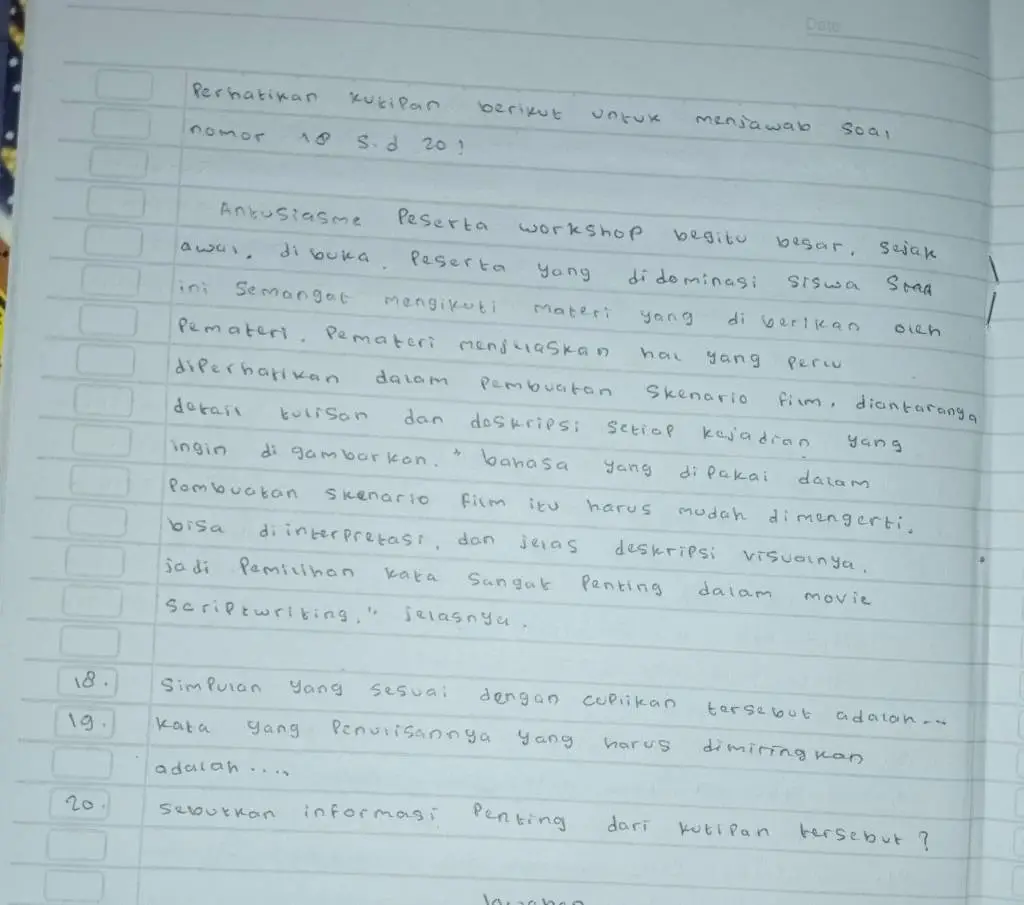 Date
Perhatikan kutipan berikut untuk menjawab soal
nomor 18 s.d 20!
Antusiasme Peserta workshop begitu besar, sejak
awal, di buka, Peserta yang di dominasi siswa
ini semangat mengikuti materi yang di berikan oleh
Pemateri. Pemateri menjelaskan hal yang perlu
diperhatikan dalam pembuatan skenario film, diantaranya
detail tulisan dan deskripsi setiap kejadian yang
ingin di gambarkan. "bahasa yang di pakai dalam
Pembuatan skenario film itu harus mudah di mengerti,
bisa di interpretasi, dan jelas deskripsi visualnya.
jadi Pemilihan kata sangat Penting dalam movie
scriptwriting," jelasnya.
18. Simpulan yang sesuai dengan cuplikan tersebut adalah...
19. kata yang Penulisannya yang harus dimiringkan
adalah ....
20. sebutkan informasi Penting dari kutipan tersebut?